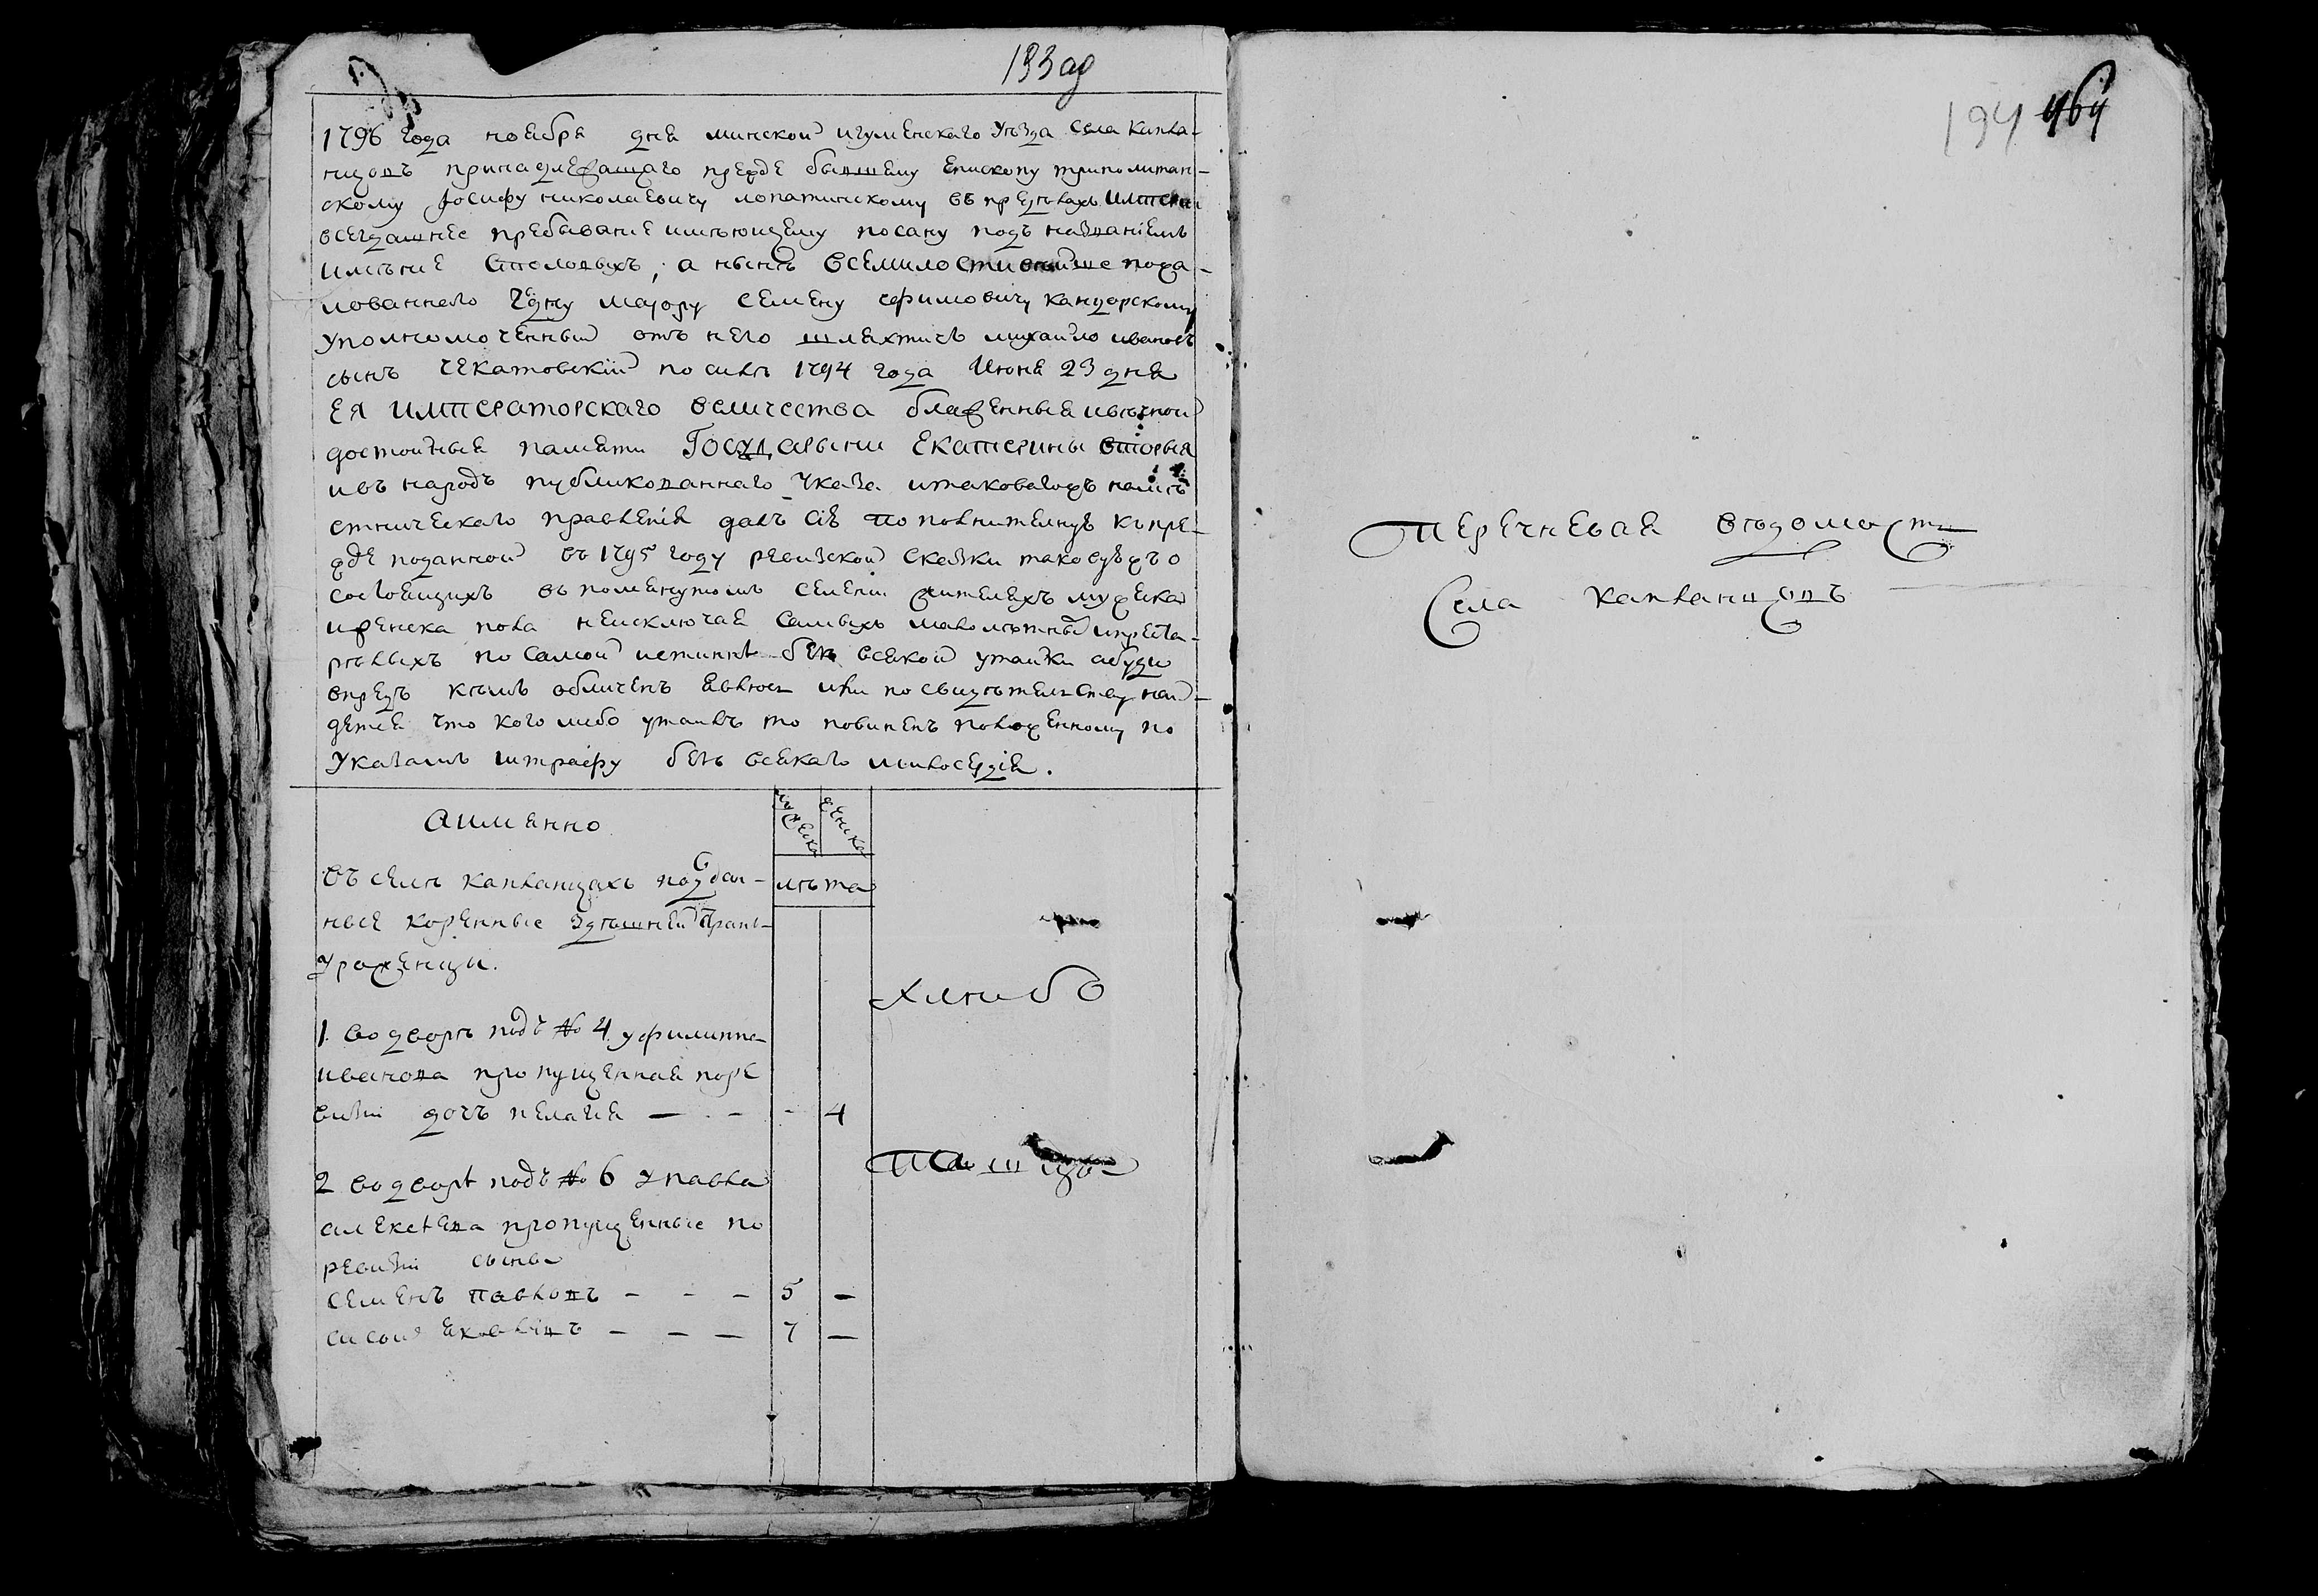 193 об
1796 года ноября дня минской игуменскаго уѣзда села Капла-
нцовъ принадлежащаго прежде бывшему епископу триполитан-
скому Іосифу николаевичу лопатинскому въ предѣлахъ имперіи
всегдашнее пребываніе имѣющему по сану подъ названіемъ
имѣніе Столовыхъ, а нынѣ всемилостивѣйше пожа-
лованнаго гдну маіору семену ефимовичу канцерскому
уполномоченный отъ него шляхтичь михайло ивановъ
сынъ чекатовскій по силѣ 1794 года Июня 23 дня
ея императорскаго величества блаженныя и вѣчной
достойныя памяти Государыни екатерины вторыя
и въ народъ публикованнаго указа и таковагожъ намѣ-
стническаго правленія далъ сію пополнительную къ пре-
жде поданной въ 1795 году ревизской сказки таковуюжъ о
состоящихъ въ помянутомъ селеніи жителяхъ мужеска
и женска пола неисключая самыхъ малолѣтныхъ и преста-
рѣлыхъ по самой истиннѣ безъ всякой утайки а буди
впредъ кѣмъ обличенъ явлюсь или по свидѣтельству най-
детея что кого либо утаилъ то повиненъ положенному по
указамъ штрафу безъ всякаго милосердія.
а именно
мужеска женска
въ селѣ капланцахъ поддан-
лѣта
ные коренные здѣшней стране
уроженцы.
Хлѣибо
1. во дворѣ подъ № 4 у филиппа
иванова пропущенная по ре
визіи дочь пелагея — - — - 4
пашцы
2 во дворѣ подъ № 6 у павла
алексѣева пропущенные по
ревизіи сыны
семенъ павловъ - - - 5 —
сысой яковлевъ — — — 7 —
194 464
Перечневая вѣдомость
Села капланцовъ